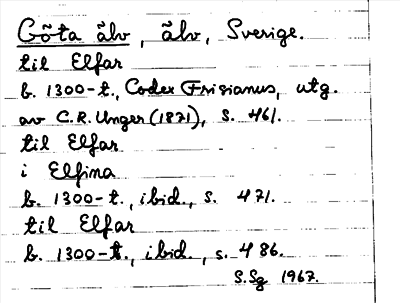 Göta älv, älv, Sverige.
til Elfar
b. 1300-t., Codex Frisianus, utg.
av C.R. Unger (1871), s. 461.
til Elfar
i Elfina
b. 1300-t., ibid., s. 471.
til Elfar
b. 1300-t., ibid., s. 486.
S.Sg 1967.